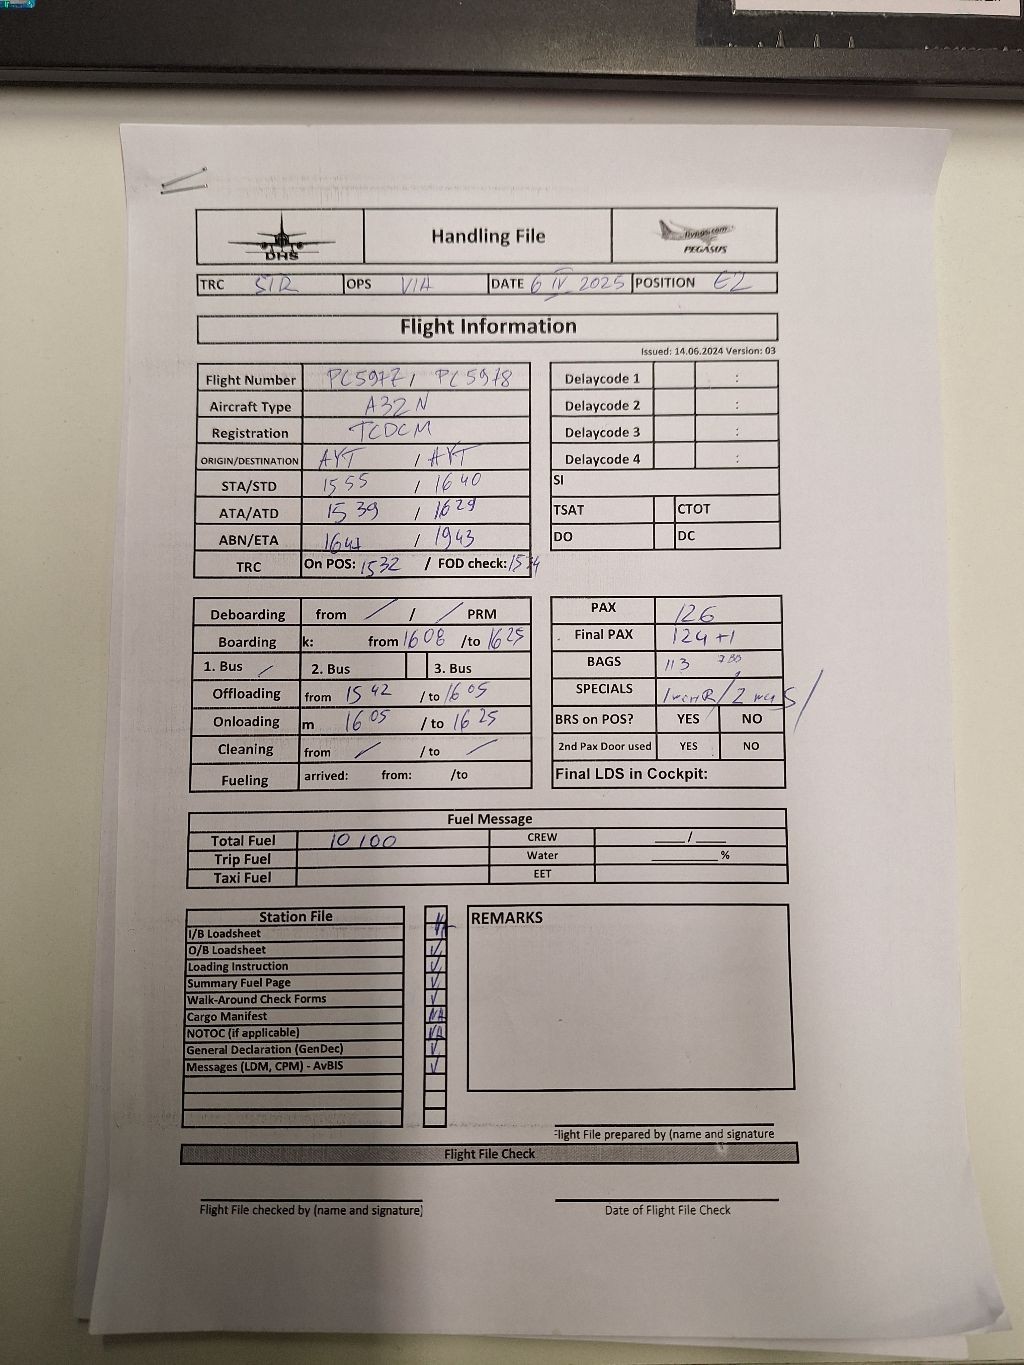 DHS Handling File flypgs.com PEGASUS
TRC SIR OPS VIA DATE 6 IV 2025 POSITION E2
Flight Information
Issued: 14.06.2024 Version: 03
Flight Number PC5977 / PC5978
Aircraft Type A32N
Registration TCDCM
ORIGIN/DESTINATION AYT / AYT
STA/STD 1555 / 1640
ATA/ATD 1539 / 1629
ABN/ETA 1641 / 1943
TRC On POS: 1532 / FOD check: 1534
Delaycode 1 :
Delaycode 2 :
Delaycode 3 :
Delaycode 4 :
SI
TSAT CTOT
DO DC
Deboarding from / / / PRM
Boarding k: from 1608 /to 1625
1. Bus / 2. Bus 3. Bus
Offloading from 1542 / to 1605
Onloading m 1605 / to 1625
Cleaning from / / to /
Fueling arrived: from: /to
PAX 126
Final PAX 124+1
BAGS 113
SPECIALS
BRS on POS? YES NO
2nd Pax Door used YES NO
Final LDS in Cockpit:
Fuel Message
Total Fuel 10100 CREW ___/___
Trip Fuel Water ______%
Taxi Fuel EET
Station File
I/B Loadsheet
O/B Loadsheet ✓
Loading Instruction ✓
Summary Fuel Page ✓
Walk-Around Check Forms ✓
Cargo Manifest NA
NOTOC (if applicable) NA
General Declaration (GenDec) ✓
Messages (LDM, CPM) - AvBIS ✓
REMARKS
Flight File prepared by (name and signature
Flight File Check
Flight File checked by (name and signature)
Date of Flight File Check